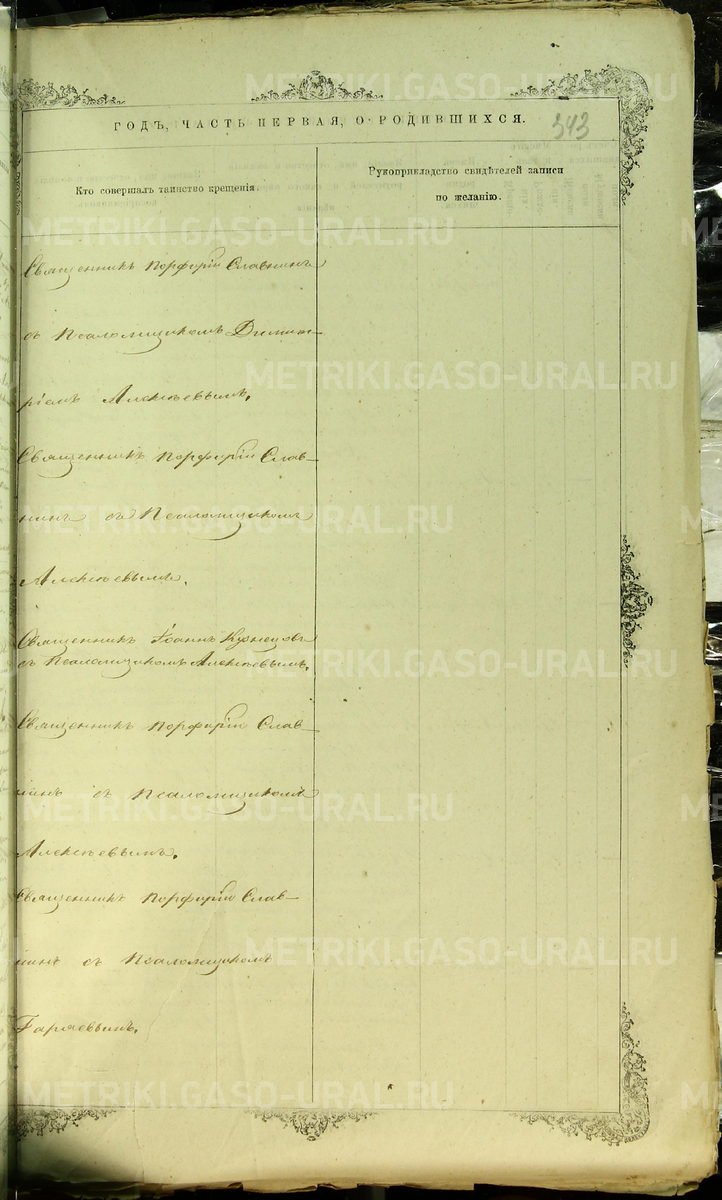 ГОДЪ, ЧАСТЬ ПЕРВАЯ, О РОДИВШИХСЯ.
343
Кто совершалъ таинство крещенія.
Рукоприкладство свидѣтелей записи
по желанію.
Священникъ Порфирій Славнинъ
съ Псаломщикомъ Димит-
ріемъ Алексѣевымъ.
Священникъ Порфирій Слав-
нинъ съ Псаломщикомъ
Алексѣевымъ.
Священникъ Іоаннъ Кузнецовъ
съ Псаломщикомъ Алексѣевымъ.
Священникъ Порфирій Слав
нинъ съ Псаломщикомъ
Алексѣевымъ.
Священникъ Порфирій Слав-
нинъ съ Псаломщикомъ
METRIKI.GASO-URAL.RU
METRIKI.GASO-URAL.RU
METRIKI.GASO-URAL.RU
METRIKI.GASO-URAL.RU
METRIKI.GASO-URAL.RU
METRIKI.GASO-URAL.RU
METRIKI.GASO-URAL.RU
METRIKI.GASO-URAL.RU